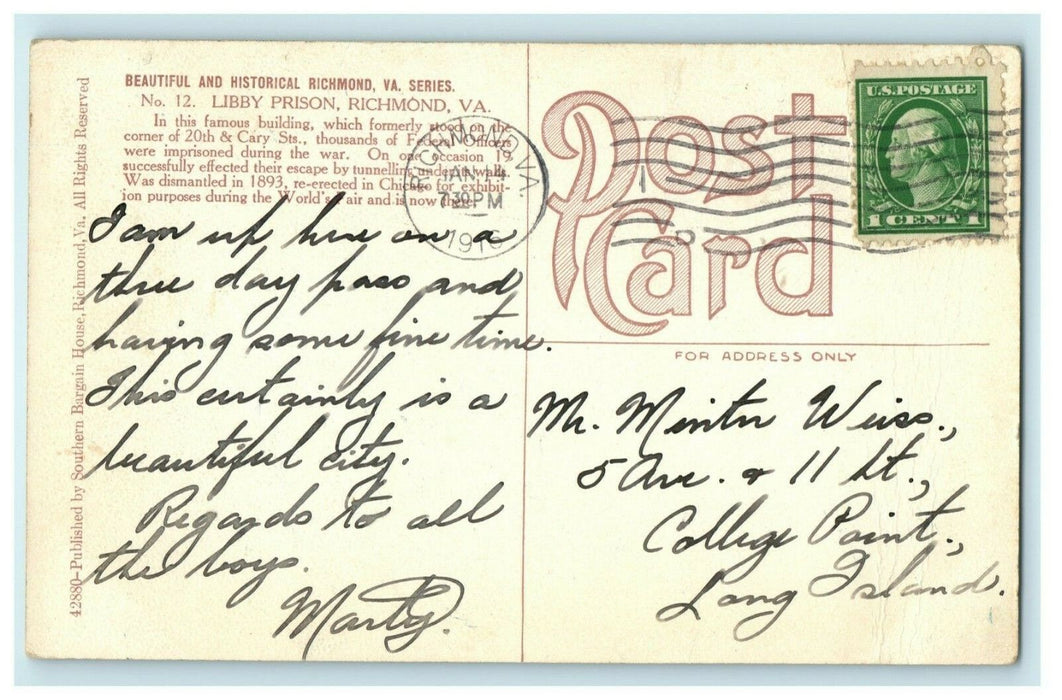 BEAUTIFUL AND HISTORICAL RICHMOND, VA. SERIES.
No. 12. LIBBY PRISON, RICHMOND, VA.
In this famous building, which formerly stood on the
corner of 20th & Cary Sts., thousands of Federal Officers
were imprisoned during the war. On one occasion
successfully effected their escape by tunnelling under the walls.
Was dismantled in 1893, re-erected in Chicago for exhibit-
ion purposes during the World's Fair and is now there.
I am up here on a
three day pass and
having some fine time.
This certainly is a
beautiful city.
Regards to all
the boys.
Marty.
42880-Published by Southern Bargain House, Richmond, Va. All Rights Reserved
RICHMOND, VA.
JAN
730 PM
Post
Card
U.S. POSTAGE
1 CENT 1
FOR ADDRESS ONLY
Mr. Weiss.,
5 Ave. & 11 St.,
College Point.,
Long Island.